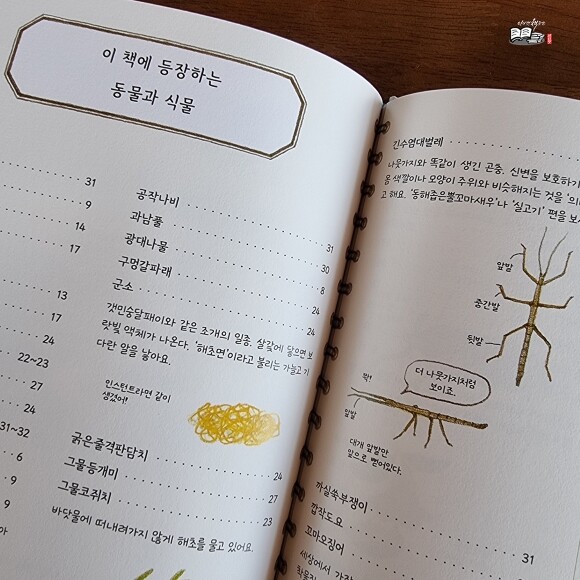 이 책에 등장하는
동물과 식물
31
9
14
17
13
17
24
22~23
27
24
31~32
6
9
9
공작나비 31
과남풀 30
광대나물 8
구멍갈파래 24
군소 24
갯민숭달팽이와 같은 조개의 일종. 살갗에 닿으면 보
랏빛 액체가 나온다. '해초면'이라고 불리는 가늘고 기
다란 알을 낳아요.
인스턴트라면 같이
생겼어!
굵은줄격판담치 24
그물등개미 27
그물코쥐치 23
바닷물에 떠내려가지 않게 해초를 물고 있어요.
긴수염대벌레
나뭇가지와 똑같이 생긴 곤충. 신변을 보호하기
몸 색깔이나 모양이 주위와 비슷해지는 것을 '의
고 해요. '동해좁은뿔꼬마새우'나 '실고기' 편을 보
앞발
중간발
뒷발
더 나뭇가지처럼
보이죠.
쫙!
앞발
대개 앞발만
앞으로 뻗어있다.
까실쑥부쟁이
깝작도요
꼬마오징어 31
세상에서 가장